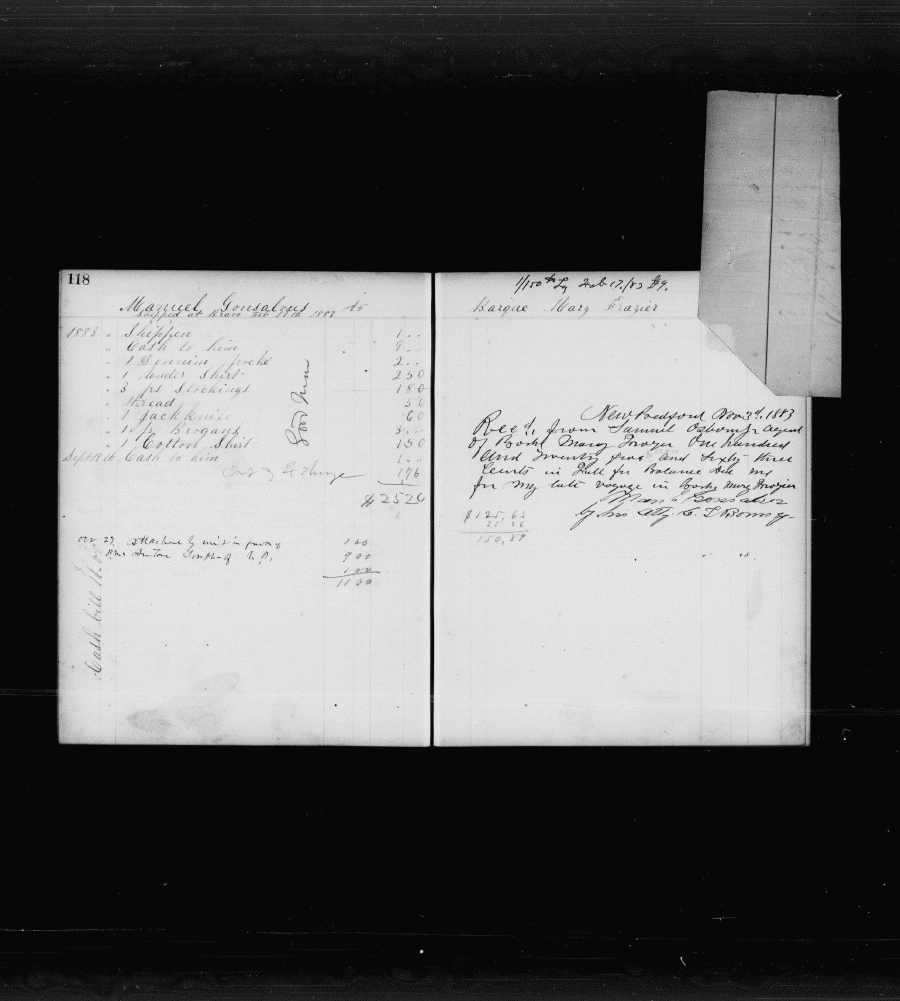 118
Manuel Gonsalves to
Shipped at Bravo Feb 17th 1883
1883 " Shippen 1 " "
" Cash to him 5 " "
" 1 Dennim frock 2 " "
" 1 under Shirt 2 50
" 3 prs Stockings 1 80
" thread 50
" 1 jack knife 60
" 1 pr Brogans 3 " "
" 1 Cotton Shirt 1 50
Sept 19th Cash to him 1 " "
1,76
$ 25 26
Good Man
27, attached by writ in favor of 1 00
of N.B. 9 00
1 00
11 00
Cash bill
1/150th Lay Feb 17/83
Barque Mary Frazier
New Bedford Nov 3d, 1883
Rec'd, from Samuel Osborn Jr agent
of Bark Mary Frazer One hundred
and Twenty five and Sixty three
Cents in full for Balance due me
for my late voyage in Bark Mary Frazier
Manuel Gonsalves
by his Atty. C. T. Bonney
$125,63
25 26
150,89